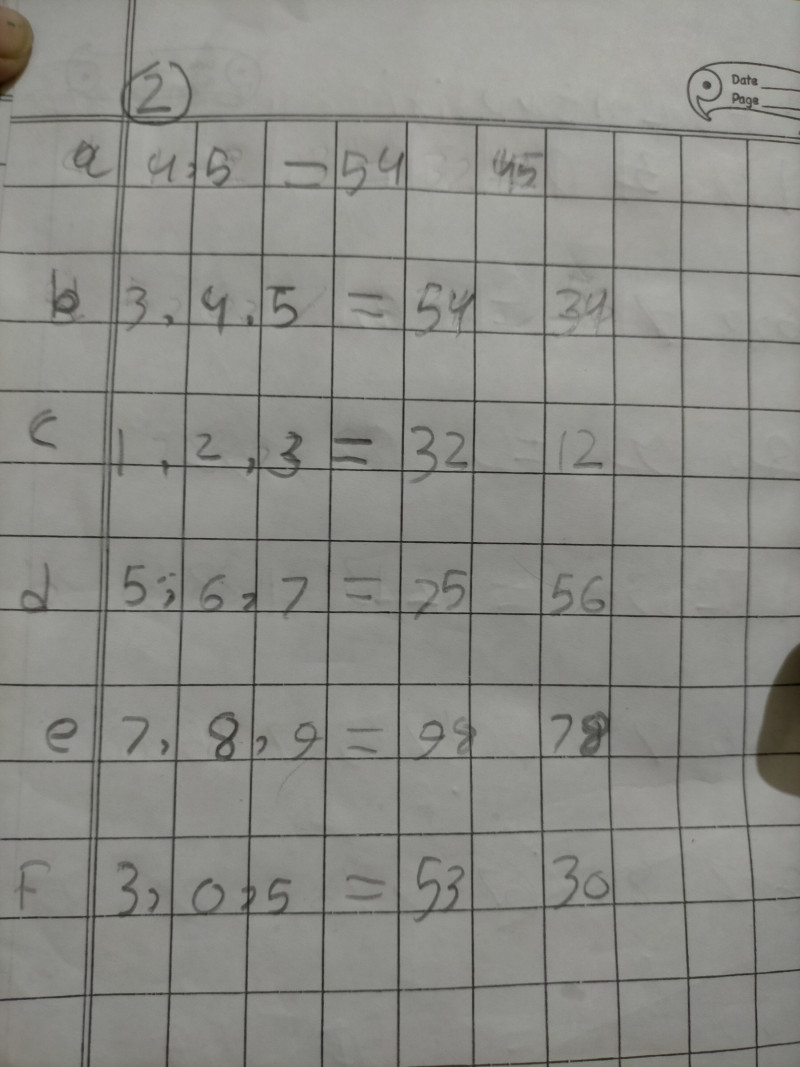 Date
Page
2
a 4,5 = 54 45
b 3,4,5 = 54 34
c 1,2,3 = 32 12
d 5,6,7 = 75 56
e 7,8,9 = 98 78
F 3,0,5 = 53 30